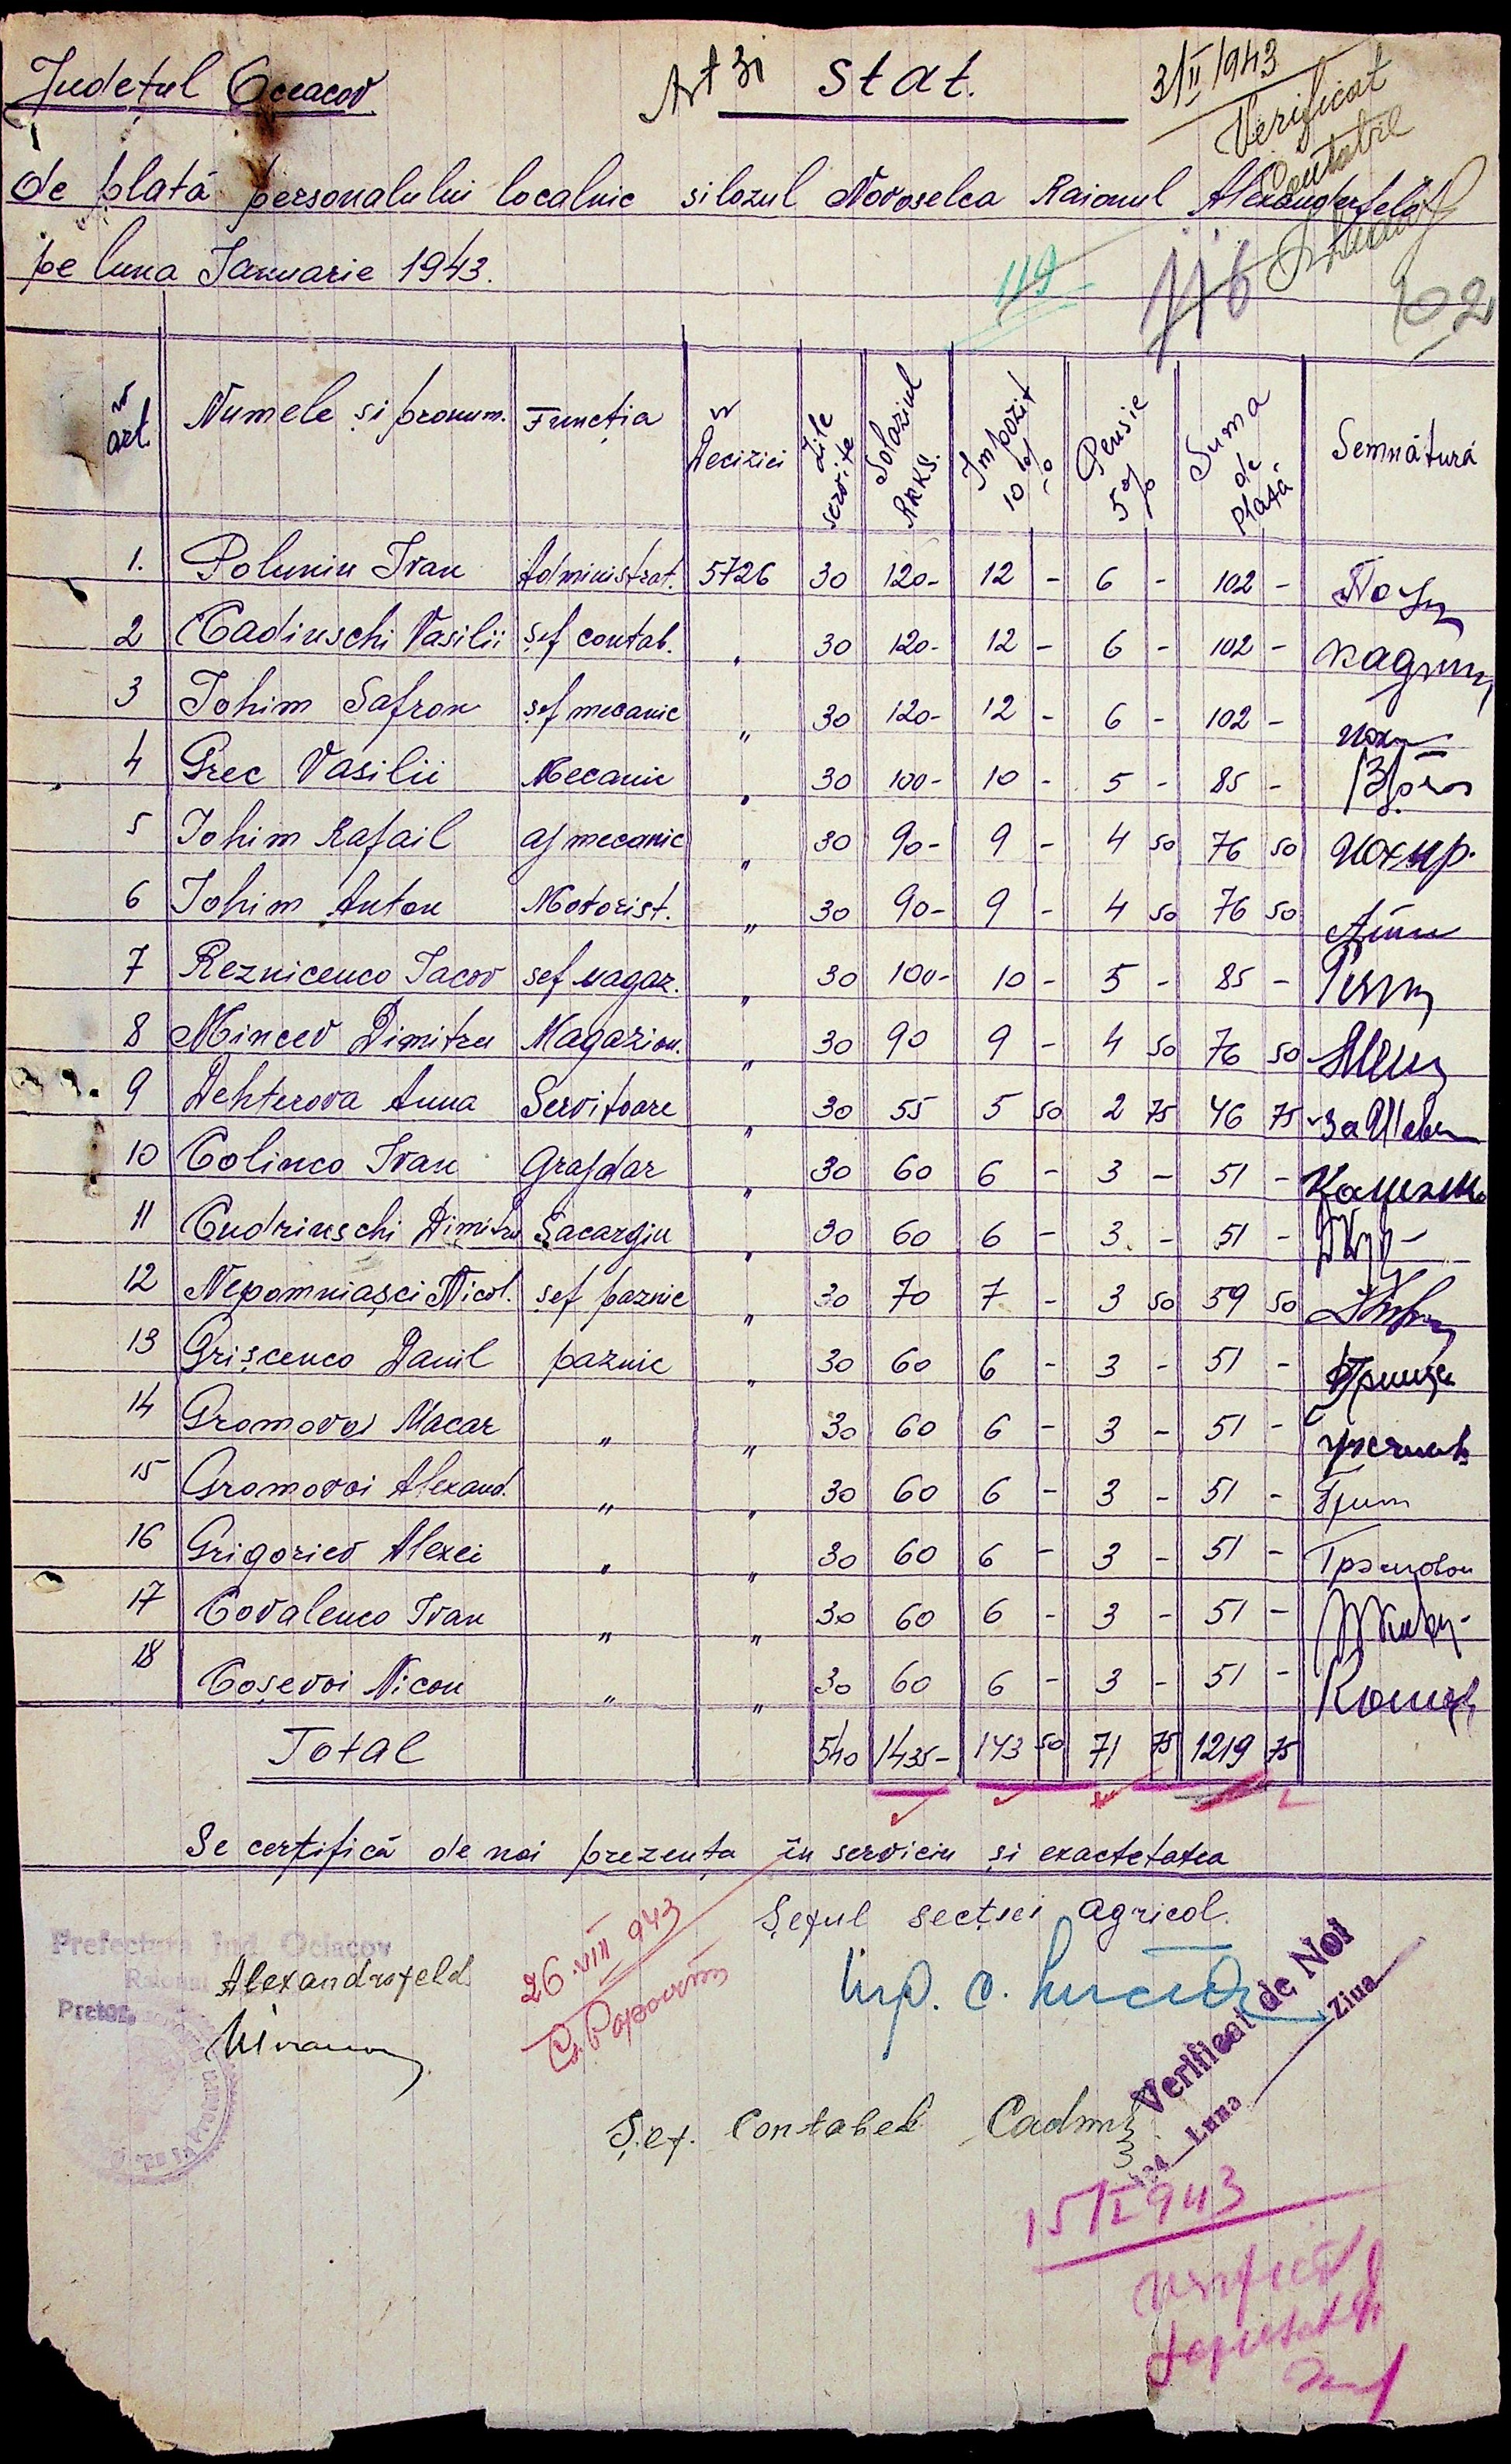 Județul Oceacov
Art 31 Stat.
3/II 1943
Verificat
Contabil
de plată personalului localnic silozul Novoselca Raionul Alexanderfeld
pe luna Ianuarie 1943.
119 116 102
N art. Numele și pronum. Funcția N Deciziei Zile servite Salariul RKKS. Impozit 10% Pensie 5% Suma de plată Semnătură
1. Polunin Ivan Administrat. 5726 30 120- 12 - 6 - 102 -
2 Cadinschi Vasilii șef contab. " 30 120- 12 - 6 - 102 -
3 Iohim Safron șef mecanic " 30 120- 12 - 6 - 102 -
4 Grec Vasilii Mecanic " 30 100- 10 - 5 - 85 -
5 Iohim Rafail aj mecanic " 30 90- 9 - 4 50 76 50
6 Iohim Anton Motorist. " 30 90- 9 - 4 50 76 50
7 Reznicenco Iacov sef magaz. " 30 100- 10 - 5 - 85 -
8 Mincev Dimitru Magazion. " 30 90 9 - 4 50 76 50
9 Dehterova Anna Servitoare " 30 55 5 50 2 75 46 75
10 Colinco Ivan Grajdar " 30 60 6 - 3 - 51 -
11 Cudrinschi Dimitru Sacargiu " 30 60 6 - 3 - 51 -
12 Nepomniașci Nicol. șef paznic " 30 70 7 - 3 50 59 50
13 Grișcenco Danil paznic " 30 60 6 - 3 - 51 -
14 Gromovoi Macar " " 30 60 6 - 3 - 51 -
15 Gromovoi Alexand. " " 30 60 6 - 3 - 51 -
16 Grigoriev Alexei " " 30 60 6 - 3 - 51 -
17 Covalenco Ivan " " 30 60 6 - 3 - 51 -
18 Coșevoi Nicon " " 30 60 6 - 3 - 51 -
Total 540 1435- 143 50 71 75 1219 75
Se certifică de noi prezența în serviciu și exactetatea
Șeful secției agricol.
Prefectura Jud. Ociacov
Raionul Alexandrofeld
Pretor,
26 VIII 943
Verificat de Noi
194 Luna Ziua
Șef. Contabel
15/I 943